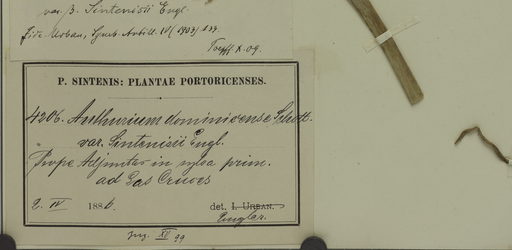 var. β. Sintenisii Engl.
fide Urban, Symb. Antill. IV (1903) 133.
X. 09.
P. SINTENIS: PLANTAE PORTORICENSES.
4206. Anthurium dominicense Schott.
var. Sintenisii Engl.
Prope Adjuntas in sylva prim.
ad Las Cruces
2. IV 1886. det. I. URBAN.
Engler.
XII 99